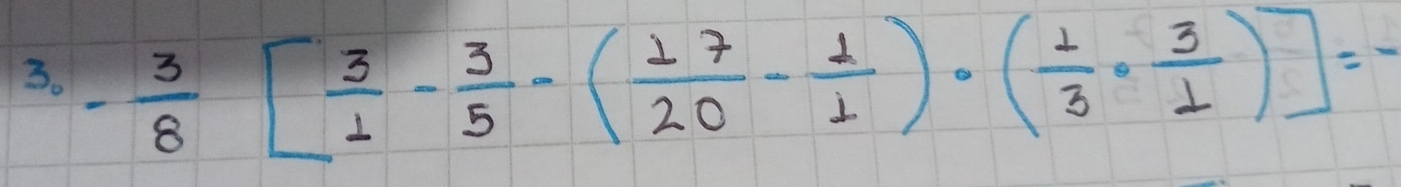 3. - 3/8 [ 3/1 - 3/5 - ( 17/20 - 1/1 ) • ( 1/3 • 3/1 ) ] = -